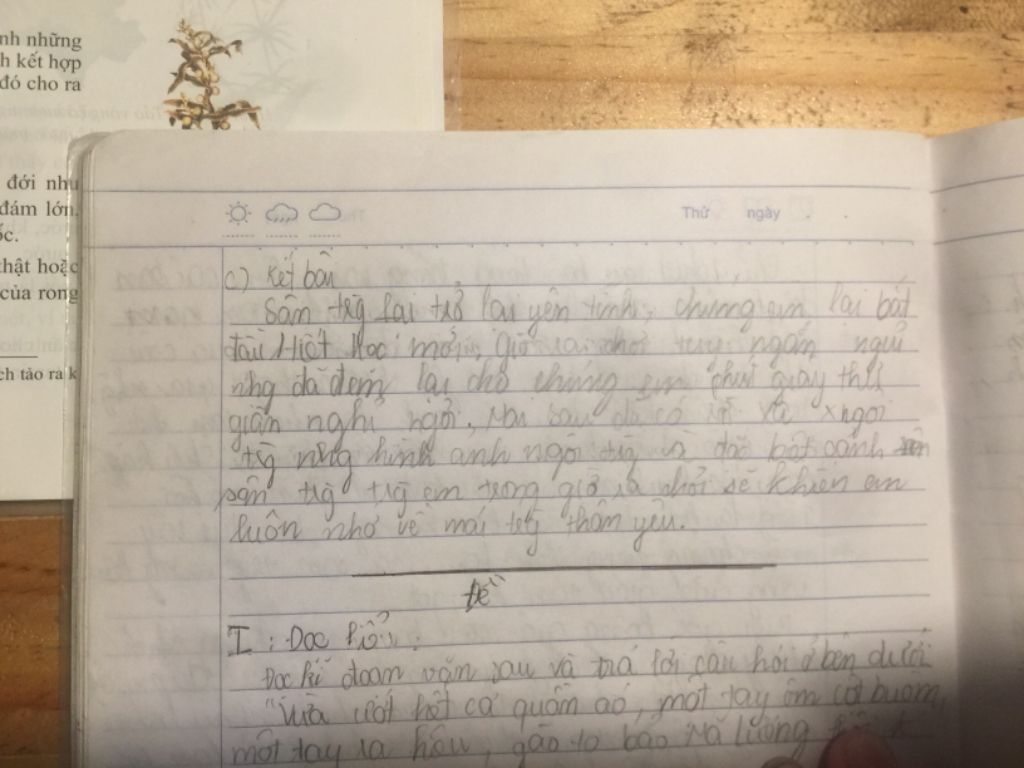 nh những
h kết hợp
đó cho ra
đới như
đám lớn.
ốc.
thật hoặc
của rong
ch tảo ra k
Thứ ngày
c) Kết bài
Sân trg lại trở lại yên tĩnh, chúng em lại bắt
đầu tiết học mới, giờ ra chơi tuy ngắn ngủi
nhg đã đem lại cho chúng em phút giây thư
giãn nghỉ ngơi. Mai sau dù có xa
trg nhg hình ảnh ngôi trg và đặc biệt cảnh
sân trg trg em trong giờ ra chơi sẽ khiến em
luôn nhớ về mái trg thân yêu.
Đề
I: Đọc hiểu:
Đọc kĩ đoạn văn sau và trả lời câu hỏi ở bên dưới
"Vừa ướt hết cả quần áo, một tay ôm cột buồm,
một tay ra hiệu, gào to bảo Mã Lương